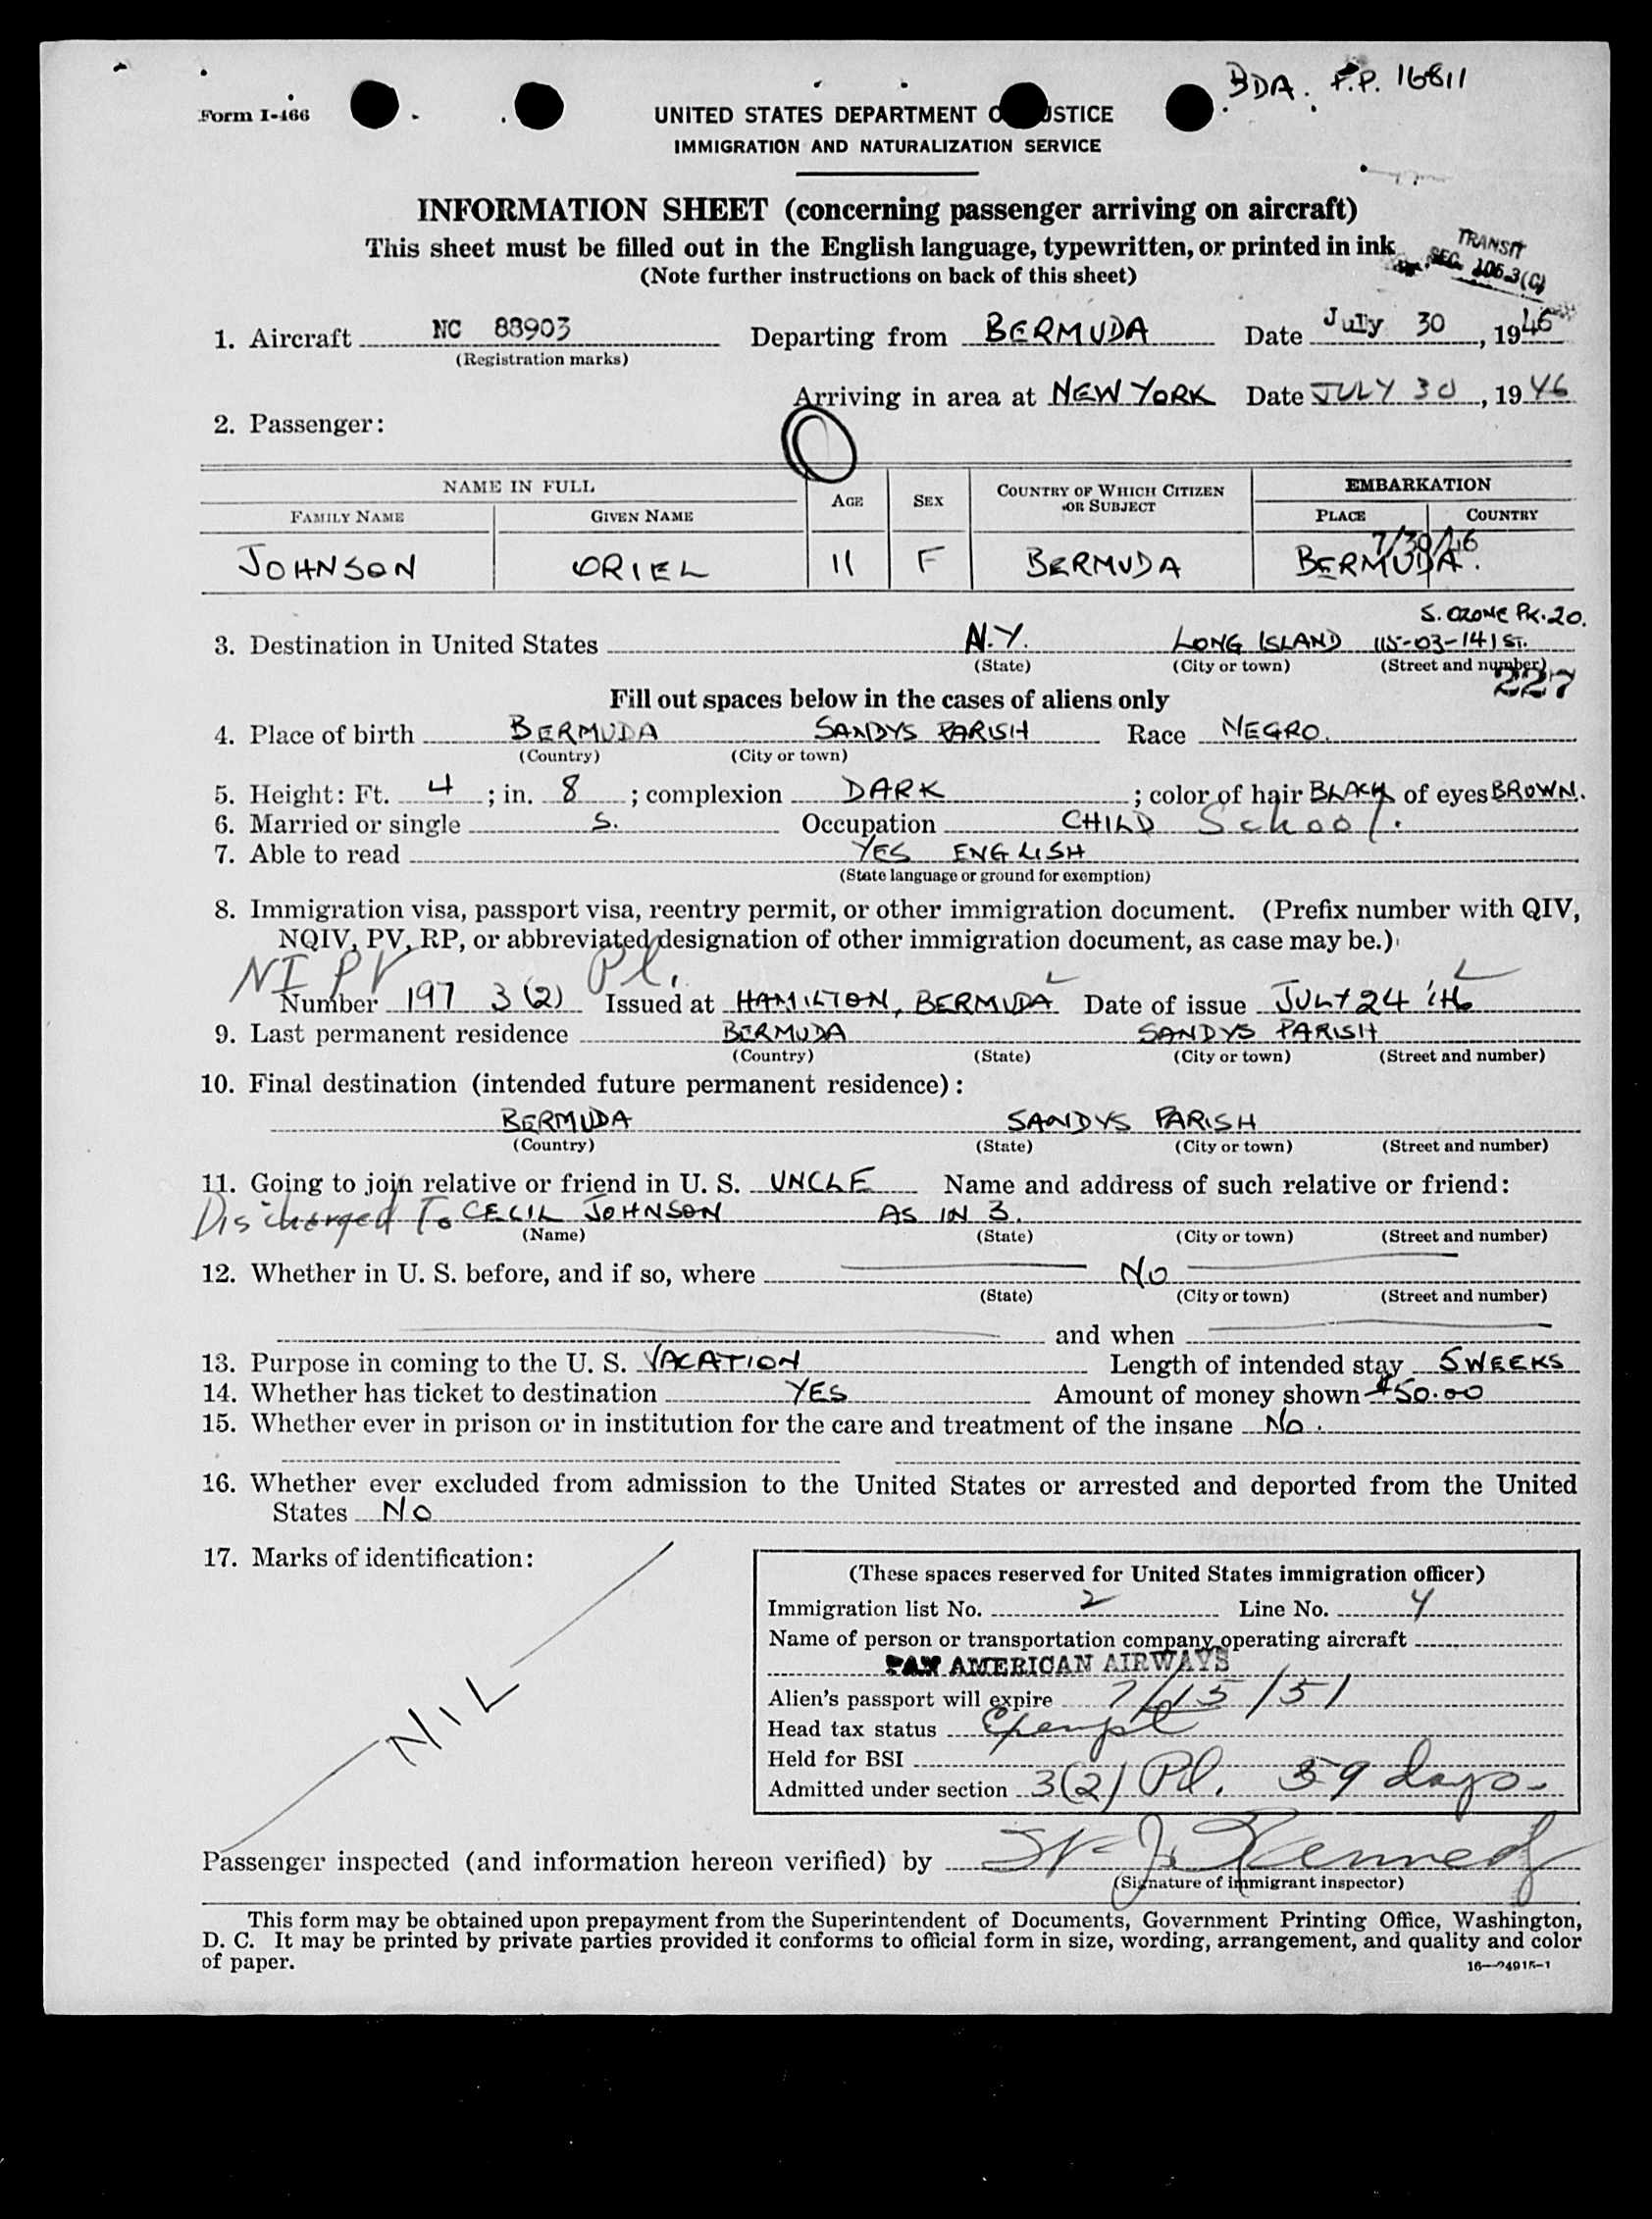 BDA. P.P. 16811
Form I-466
UNITED STATES DEPARTMENT OF JUSTICE
IMMIGRATION AND NATURALIZATION SERVICE
INFORMATION SHEET (concerning passenger arriving on aircraft)
This sheet must be filled out in the English language, typewritten, or printed in ink
TRANSIT
SEC. 105.3(C)
(Note further instructions on back of this sheet)
1. Aircraft NC 88903 Departing from BERMUDA Date July 30, 1946
(Registration marks)
Arriving in area at NEW YORK Date JULY 30, 1946
2. Passenger:
NAME IN FULL AGE SEX COUNTRY OF WHICH CITIZEN OR SUBJECT EMBARKATION
FAMILY NAME GIVEN NAME PLACE COUNTRY
7/30/46
JOHNSON ORIEL 11 F BERMUDA BERMUDA.
S. OZONE PK. 20.
3. Destination in United States N.Y. LONG ISLAND 115-03-141 ST.
(State) (City or town) (Street and number)
227
Fill out spaces below in the cases of aliens only
4. Place of birth BERMUDA SANDYS PARISH Race NEGRO.
(Country) (City or town)
5. Height: Ft. 4; in. 8; complexion DARK; color of hair BLACK of eyes BROWN.
6. Married or single S. Occupation CHILD School.
7. Able to read YES ENGLISH
(State language or ground for exemption)
8. Immigration visa, passport visa, reentry permit, or other immigration document. (Prefix number with QIV,
NQIV, PV, RP, or abbreviated designation of other immigration document, as case may be.)
NI PV Pl.
Number 197 3(2) Issued at HAMILTON, BERMUDA Date of issue JULY 24 '46
9. Last permanent residence BERMUDA SANDYS PARISH
(Country) (State) (City or town) (Street and number)
10. Final destination (intended future permanent residence):
BERMUDA SANDYS PARISH
(Country) (State) (City or town) (Street and number)
11. Going to join relative or friend in U. S. UNCLE Name and address of such relative or friend:
Discharged To CECIL JOHNSON AS IN 3.
(Name) (State) (City or town) (Street and number)
12. Whether in U. S. before, and if so, where No
(State) (City or town) (Street and number)
and when
13. Purpose in coming to the U. S. VACATION Length of intended stay 5 WEEKS
14. Whether has ticket to destination YES Amount of money shown $50.00
15. Whether ever in prison or in institution for the care and treatment of the insane No.
16. Whether ever excluded from admission to the United States or arrested and deported from the United
States No
17. Marks of identification:
NIL
(These spaces reserved for United States immigration officer)
Immigration list No. 2 Line No. 4
Name of person or transportation company operating aircraft
PAN AMERICAN AIRWAYS
Alien's passport will expire 7/15/51
Head tax status Exempt
Held for BSI
Admitted under section 3(2) Pl. 59 days.
Passenger inspected (and information hereon verified) by J. Kennedy
(Signature of immigrant inspector)
This form may be obtained upon prepayment from the Superintendent of Documents, Government Printing Office, Washington,
D. C. It may be printed by private parties provided it conforms to official form in size, wording, arrangement, and quality and color
of paper.
16—24915-1